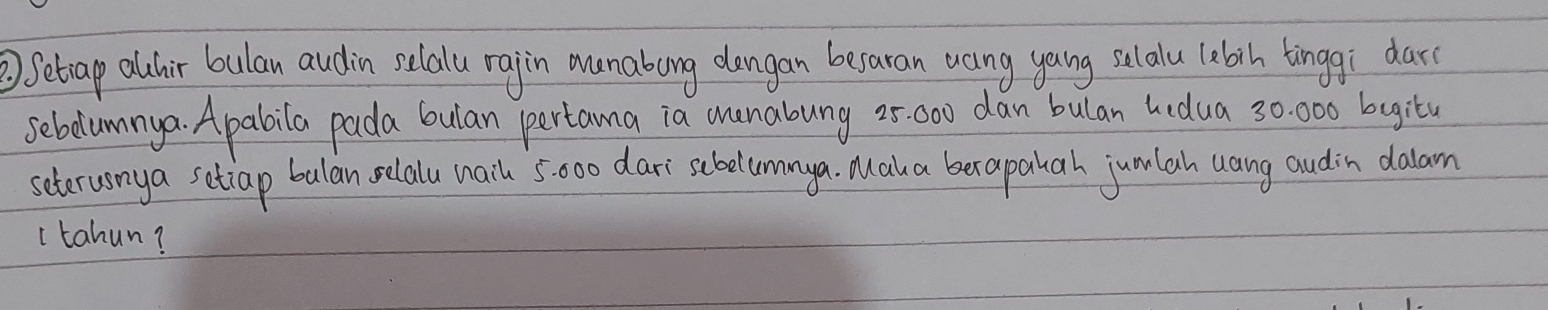 2.) Setiap akhir bulan audin selalu rajin menabung dengan besaran uang yang selalu lebih tinggi dari
sebelumnya. Apabila pada bulan pertama ia menabung 25.000 dan bulan kedua 30.000 begitu
seterusnya setiap bulan selalu naik 5.000 dari sebelumnya. Maka berapakah jumlah uang audin dalam
1 tahun?